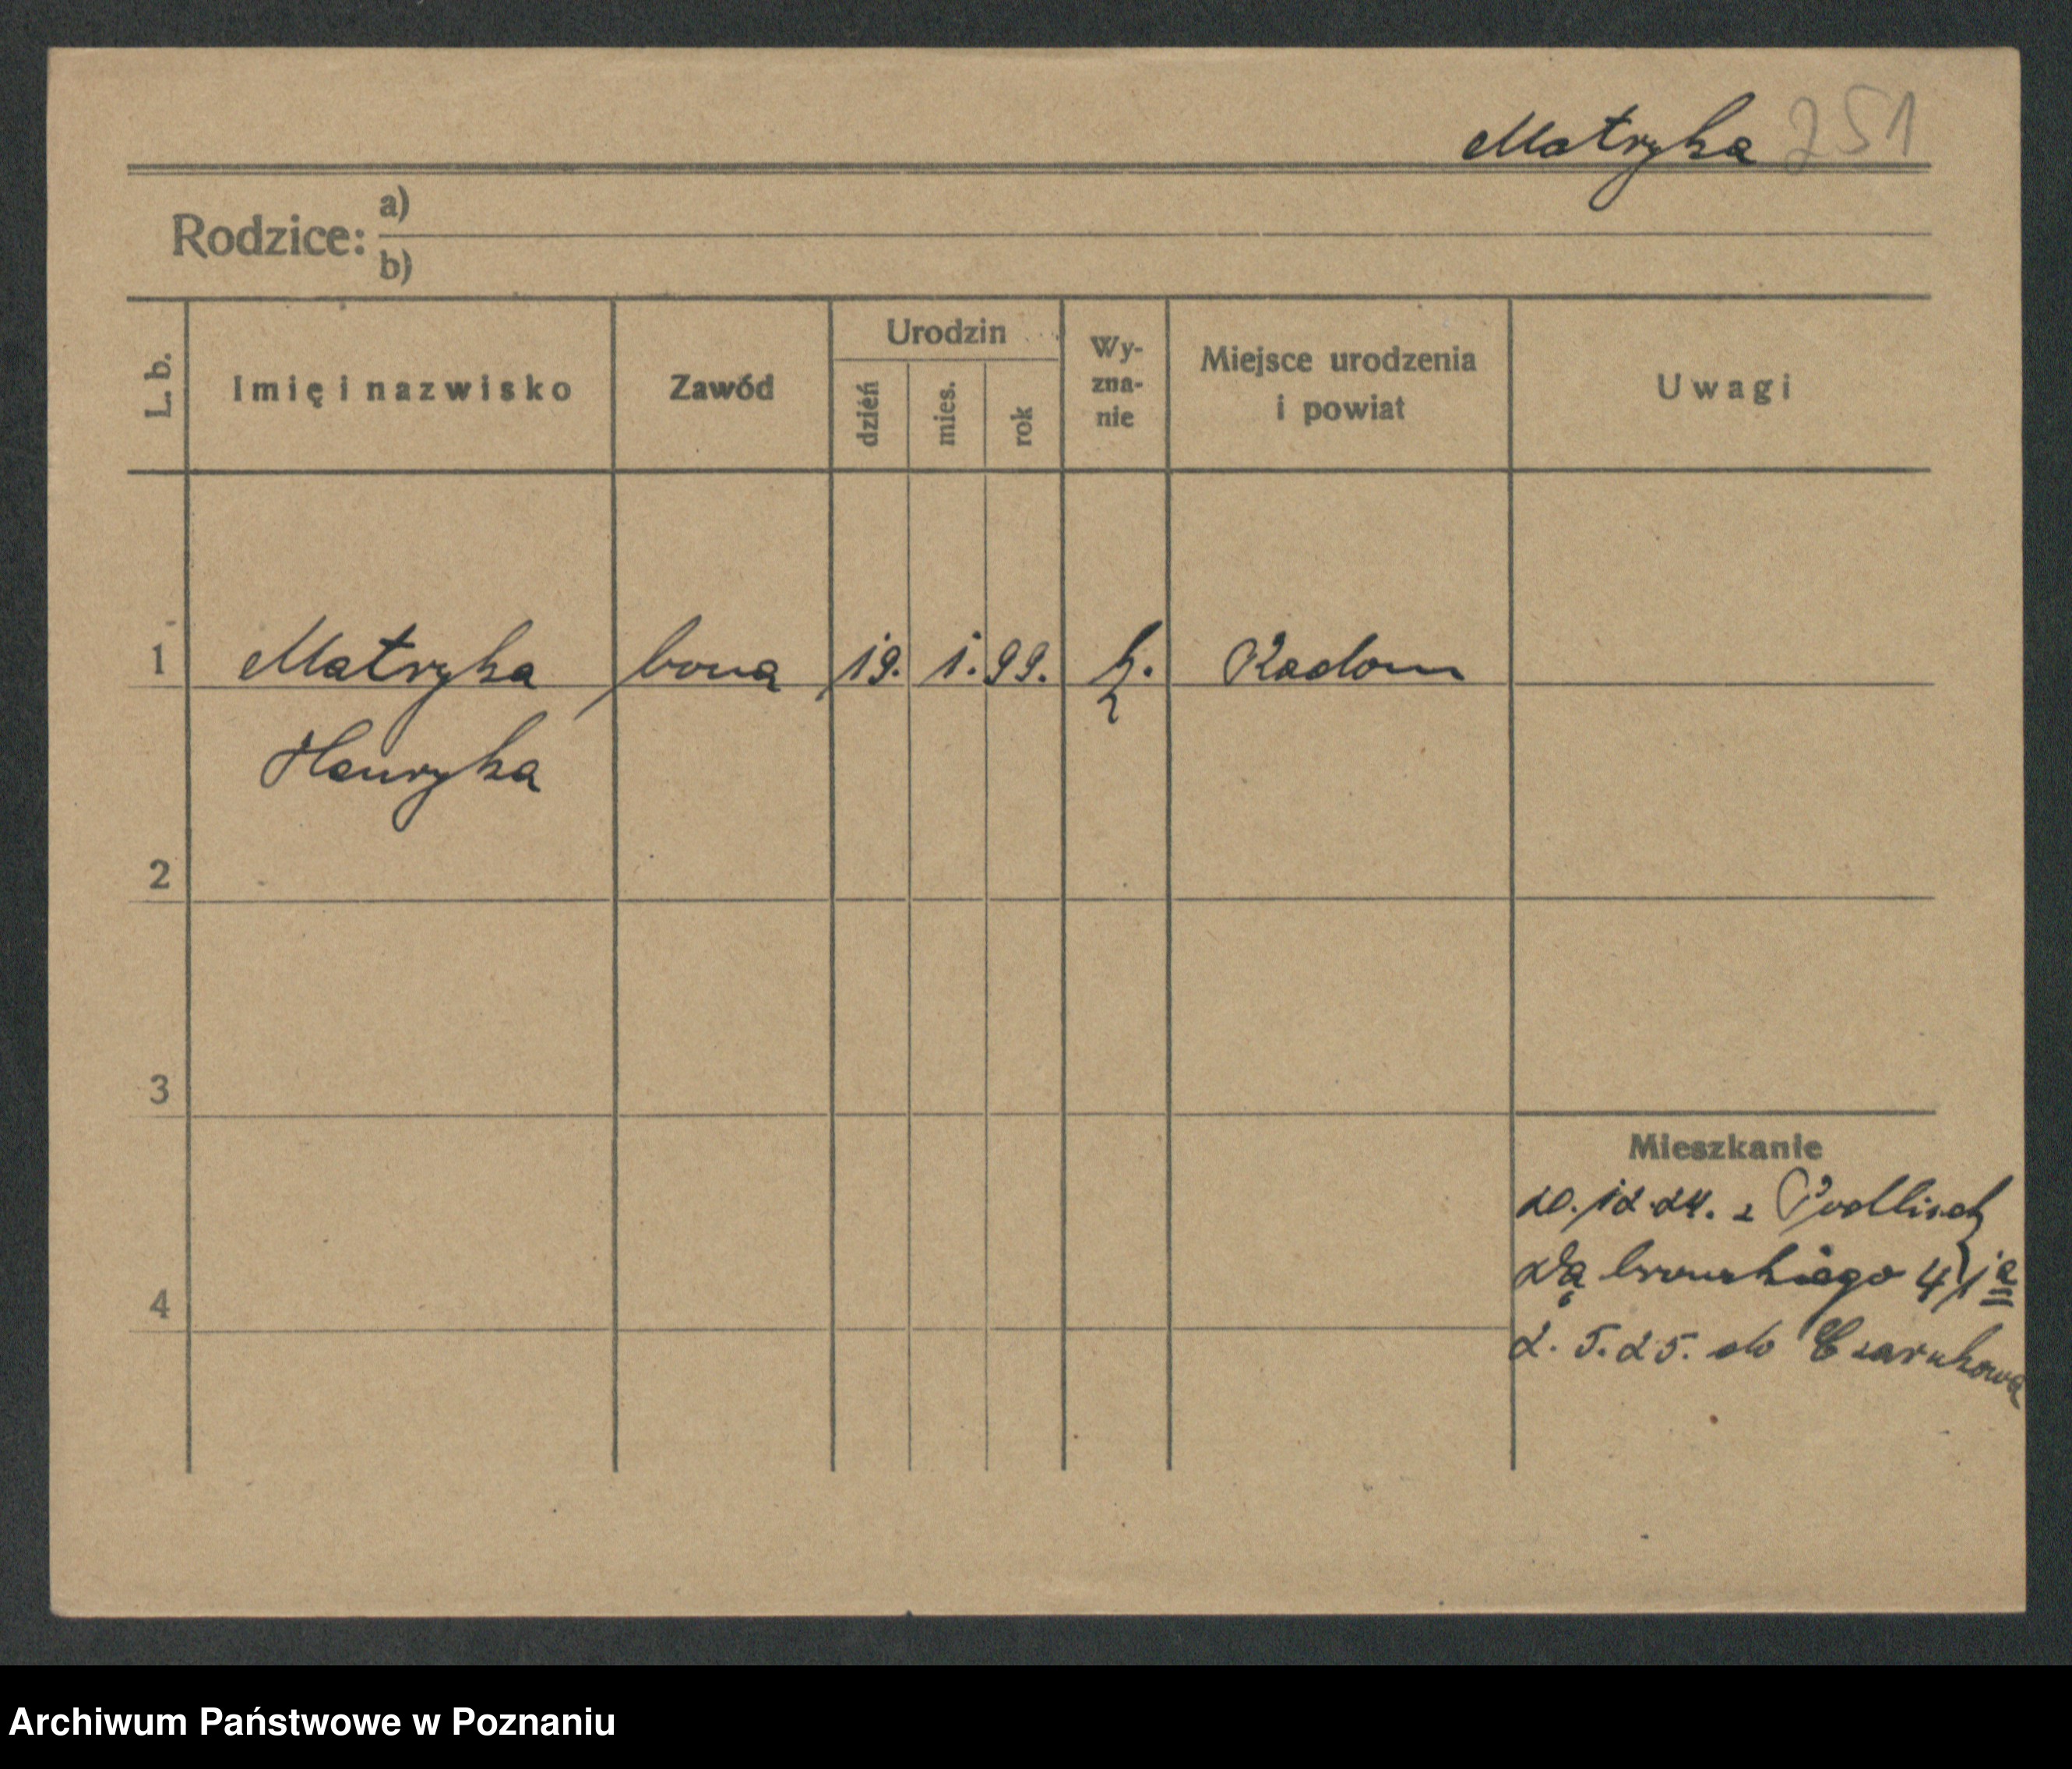 Matryka 251
Rodzice: a)
b)
L. b.
Imię i nazwisko
Zawód
Urodzin
dzień
mies.
rok
Wy-
zna-
nie
Miejsce urodzenia
i powiat
Uwagi
1 Matryka bona 19. 1. 99. k. Radom
Henryka
2
3
4
Mieszkanie
20.12.24. z
Dąbrowskiego
2.5.25. do Czarnkowa
Archiwum Państwowe w Poznaniu